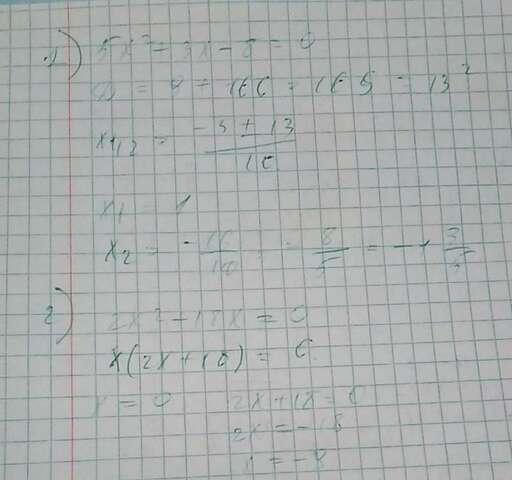 1) 5x² + 3x - 8 = 0
D = 9 + 160 = 169 = 13²
x1,2 = (-3 ± 13)/10
x1 = 1
x2 = -16/10 = -8/5 = -1 3/5
2) 2x² + 18x = 0
x(2x + 18) = 0
x = 0 2x + 18 = 0
2x = -18
x = -9